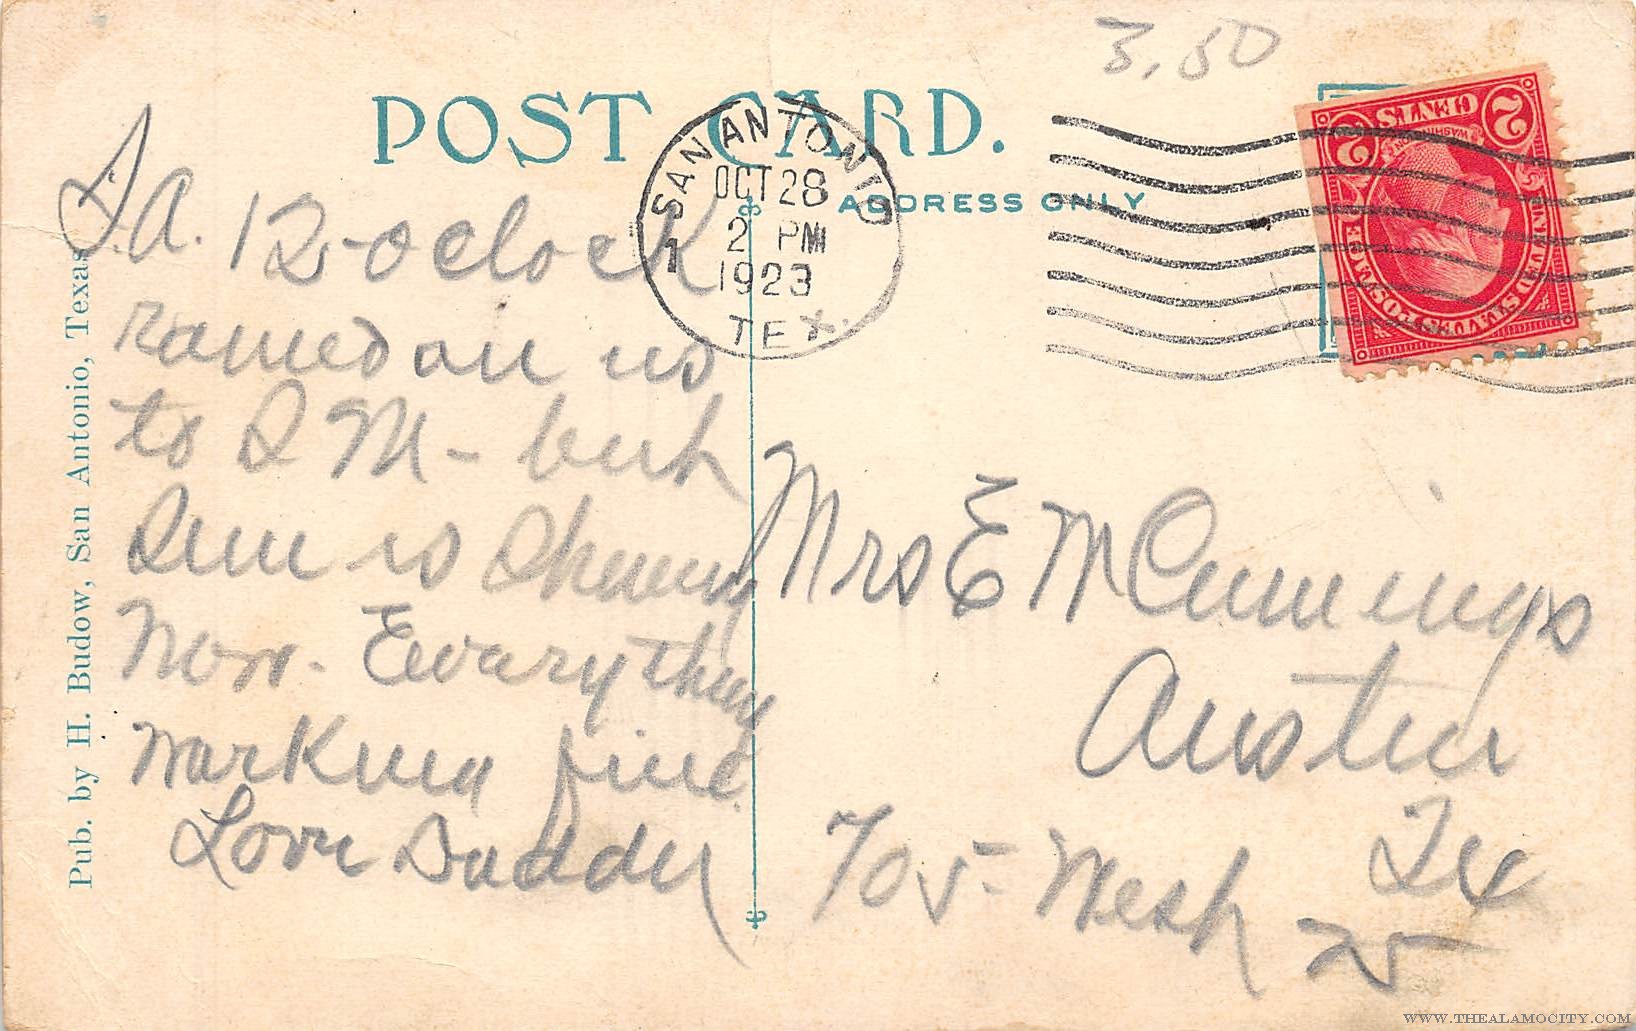 3.50
POST CARD.
ADDRESS ONLY
SAN ANTONIO
OCT 28
2 PM
1923
TEX.
1
2 CENTS 2
WASHINGTON
UNITED STATES POSTAGE
S.A. 12-oclock
rained on us
to S M - but
Sun is Shining
Now. Everything
Working fine.
Love Daddy
Mrs E M Cummings
Austin
Tex
705- West
Pub. by H. Budow, San Antonio, Texas.
WWW.THEALAMOCITY.COM